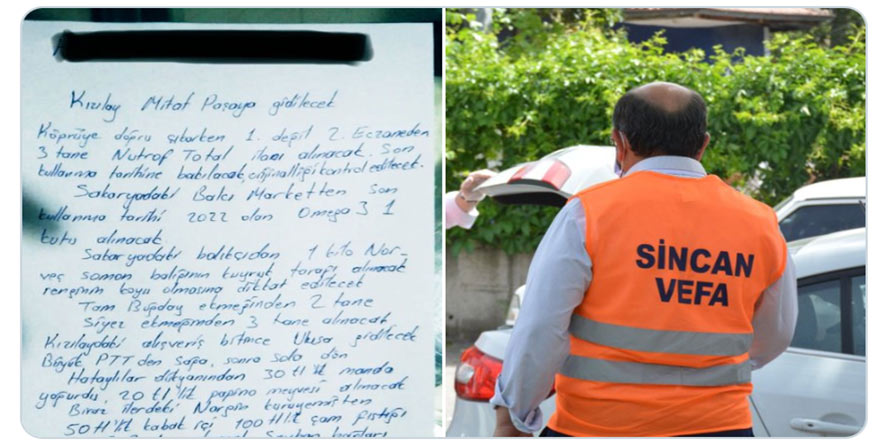 Kızılay Mitat Paşaya gidilecek
Köprüye doğru çıkarken 1. değil 2. Eczaneden
3 tane Nutrof Total ilacı alınacak. Son
kullanma tarihine bakılacak, orjinalliği kontrol edilecek.
Sakaryadaki Balcı Marketten Son
kullanma tarihi 2022 olan Omega 3 1
kutu alınacak
Sakaryadaki balıkçıdan 1 kilo Nor-
veç somon balığının kuyruk tarafı alınacak
renginin koyu olmasına dikkat edilecek
Tam Buğday ekmeğinden 2 tane
Siyez ekmeğinden 3 tane alınacak
Kızılaydaki alışveriş bitince Ulusa gidilecek
Büyük PTT den sağa, sonra sola dön
Hataylılar dükyanından 30 tl lik manda
yoğurdu, 20 tl lik papino meyvesi alınacak
Biraz ilerdeki Nargin kuruyemişten
50 tl lik kabak içi 100 tl lik çam fıstığı
SİNCAN
VEFA